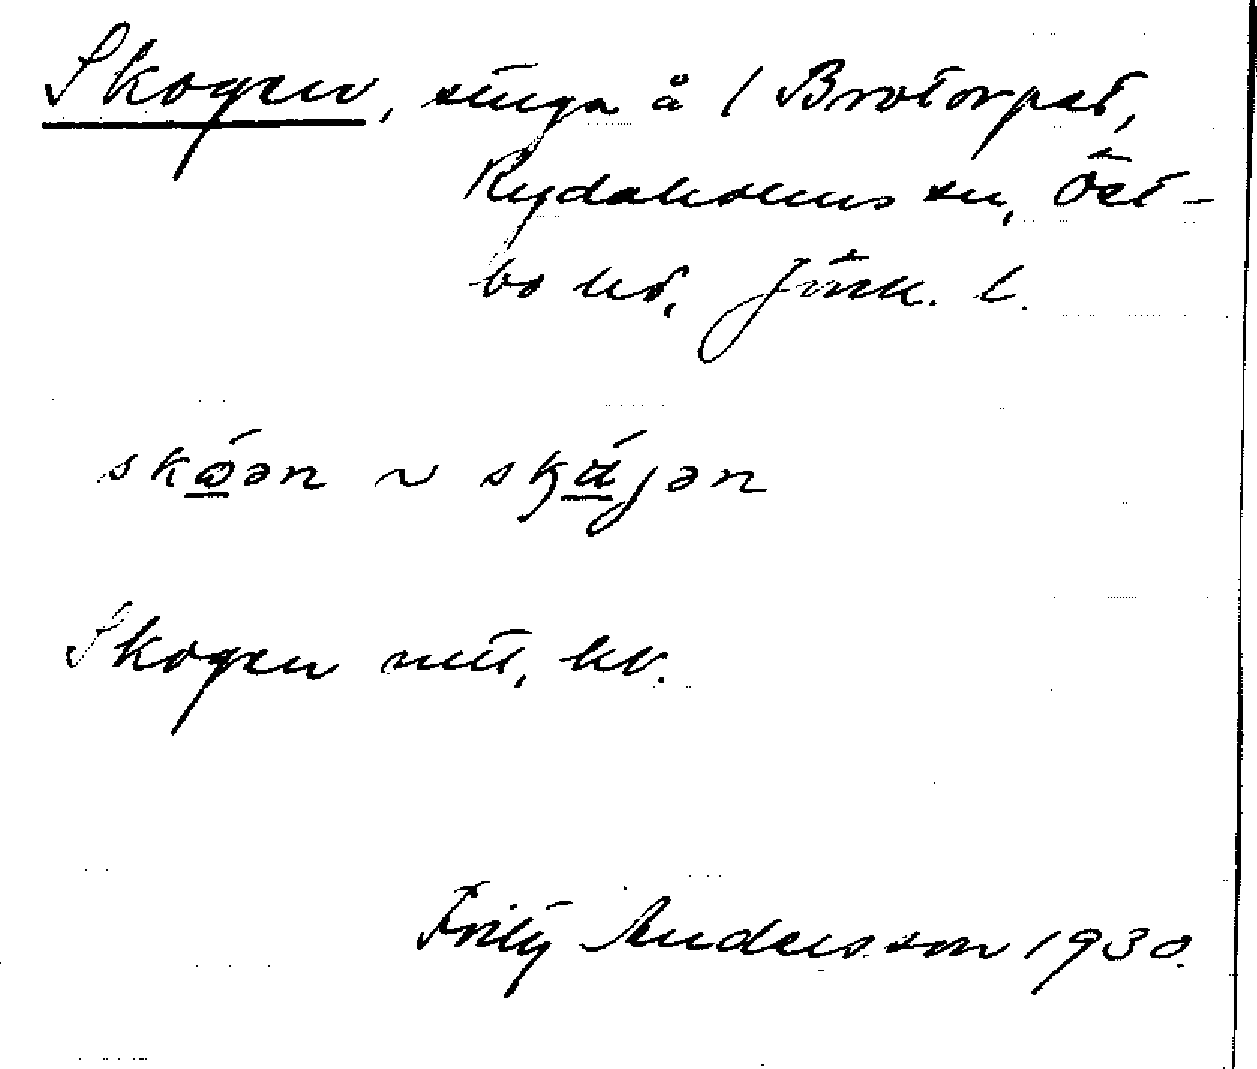 Skogen, stuga å / Brotorpet,
Rydaholms sn, Öst-
bo hd, Jönk. l.
skǿən ~ skájən
Skogen utt, hv.
Fritz Andersson 1930.